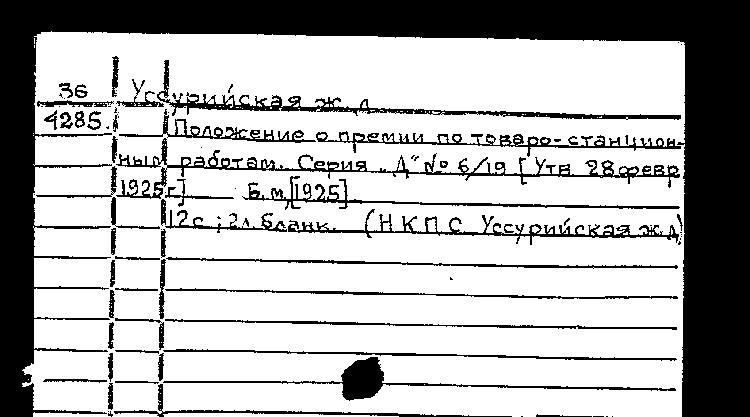 36 Уссурийская ж. д
4285. Положение о премии по товаро-станцион-
ным работам. Серия „Д" № 6/19 [Утв 28 февр
1925г.] Б.м, [1925]
12с ; 2л. бланк. (НКПС Уссурийская ж.д)